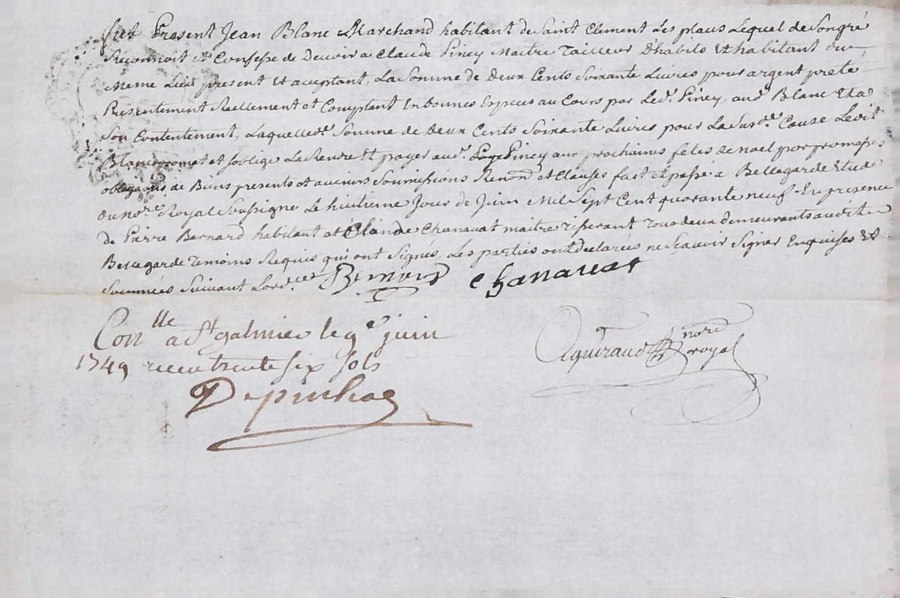 fut Present Jean Blanc Marchand habitant de Saint Clement Les places Lequel de Songré
Reconnoit et Confesse de Devoir a Claude Piney Maitre Tailleur Dhabits Et habitant du
Meme Lieu present Et aceptant La Somme de deux Cents Soixante Livres pour argent preté
Presentement Reellement et Comptant En bonnes Especes au Cours par Led. Piney, aud. Blanc Et a
Son Contentement, Laquelle de. Somme de deux Cents Soixante Livres pour La Susde. Cause Ledit
Blanc promet et soblige La Rendre Et payer aud. Piney aux prochaines fetes de noel par promesses
obligaons de Biens presents et avenirs Soumissions Renons et Clauses fait Et passé a Bellegarde Etude
du nore. Royal Soussigne Le huitieme Jour de Juin Mil Sept Cent quarante neuf En presence
de Pierre Bernard habitant et Claude Chanavat maitre Tisserant Tous deux demeurants audit
Bellegarde Temoins Requis qui ont Signés, Les parties ont declarées ne Scavoir Signer Enquises Et
Sommees Suivant Lord.ce
Bernard Chanavat
Con lle a St galmier le 9e juin
1749 recu trente six sols
Depinhac
Aguiraud nore
royal